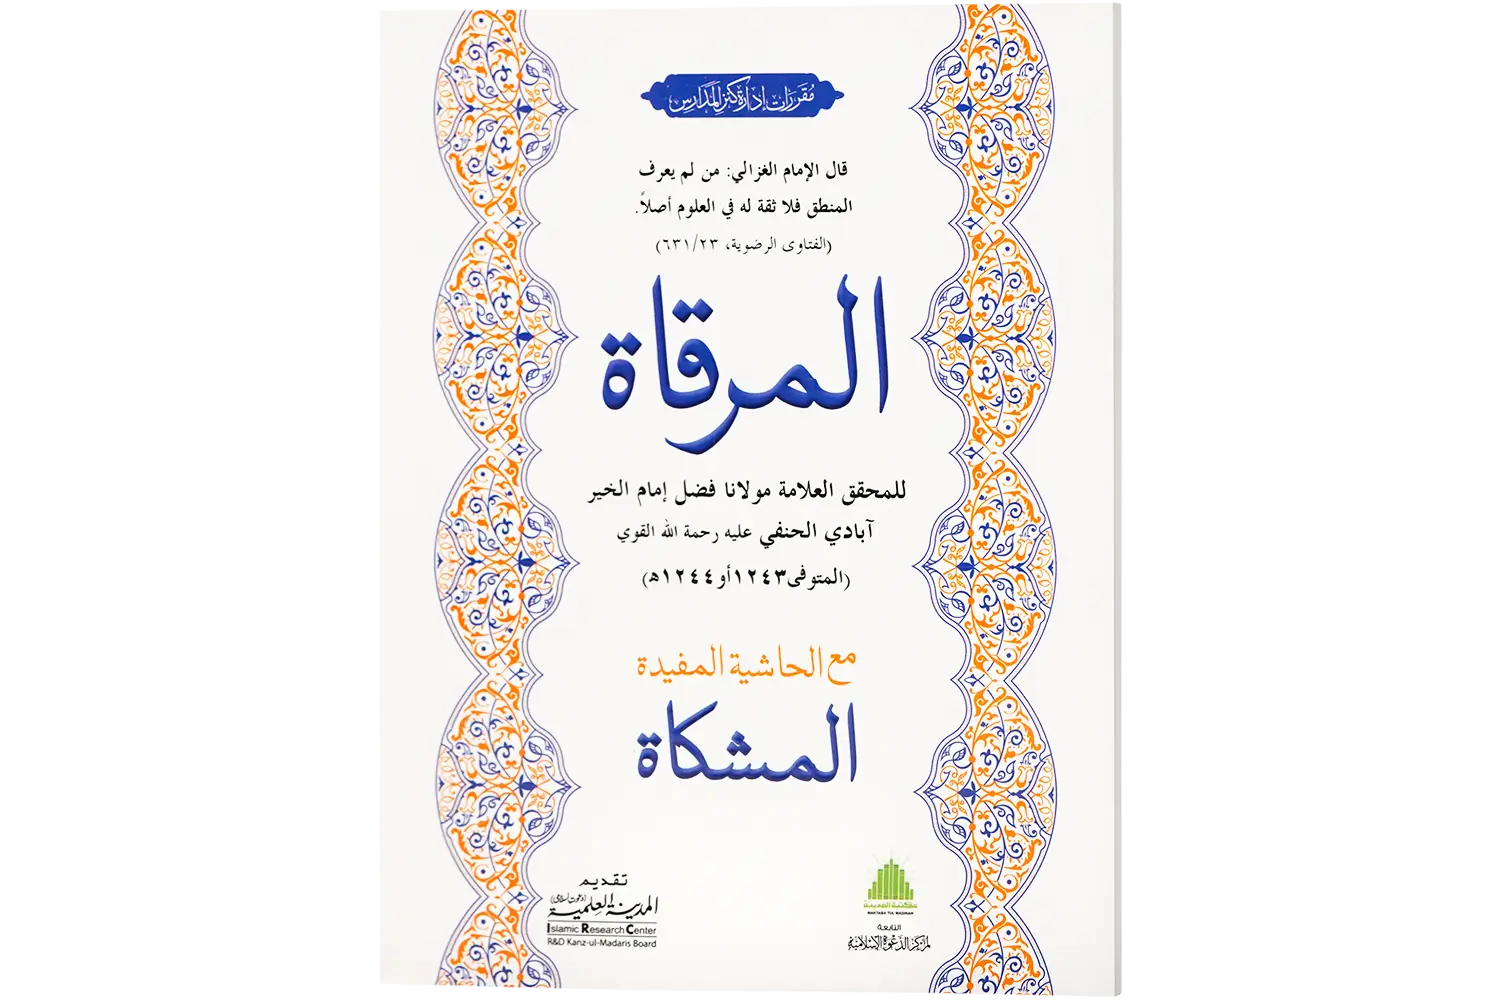 مقررات إدارة كنز المدارس
قال الإمام الغزالي: من لم يعرف
المنطق فلا ثقة له في العلوم أصلاً.
(الفتاوى الرضوية، ٢٣/٦٣١)
المرقاة
للمحقق العلامة مولانا فضل إمام الخير
آبادي الحنفي عليه رحمة الله القوي
(المتوفى١٢٤٣أو١٢٤٤ه)
مع الحاشية المفيدة
المشكاة
تقديم
المدينة العلمية (دعوت اسلامی)
Islamic Research Center
R&D Kanz-ul-Madaris Board
مكتبة المدينة
MAKTABA TUL MADINAH
التابعة
لمركز الدعوة الإسلامية